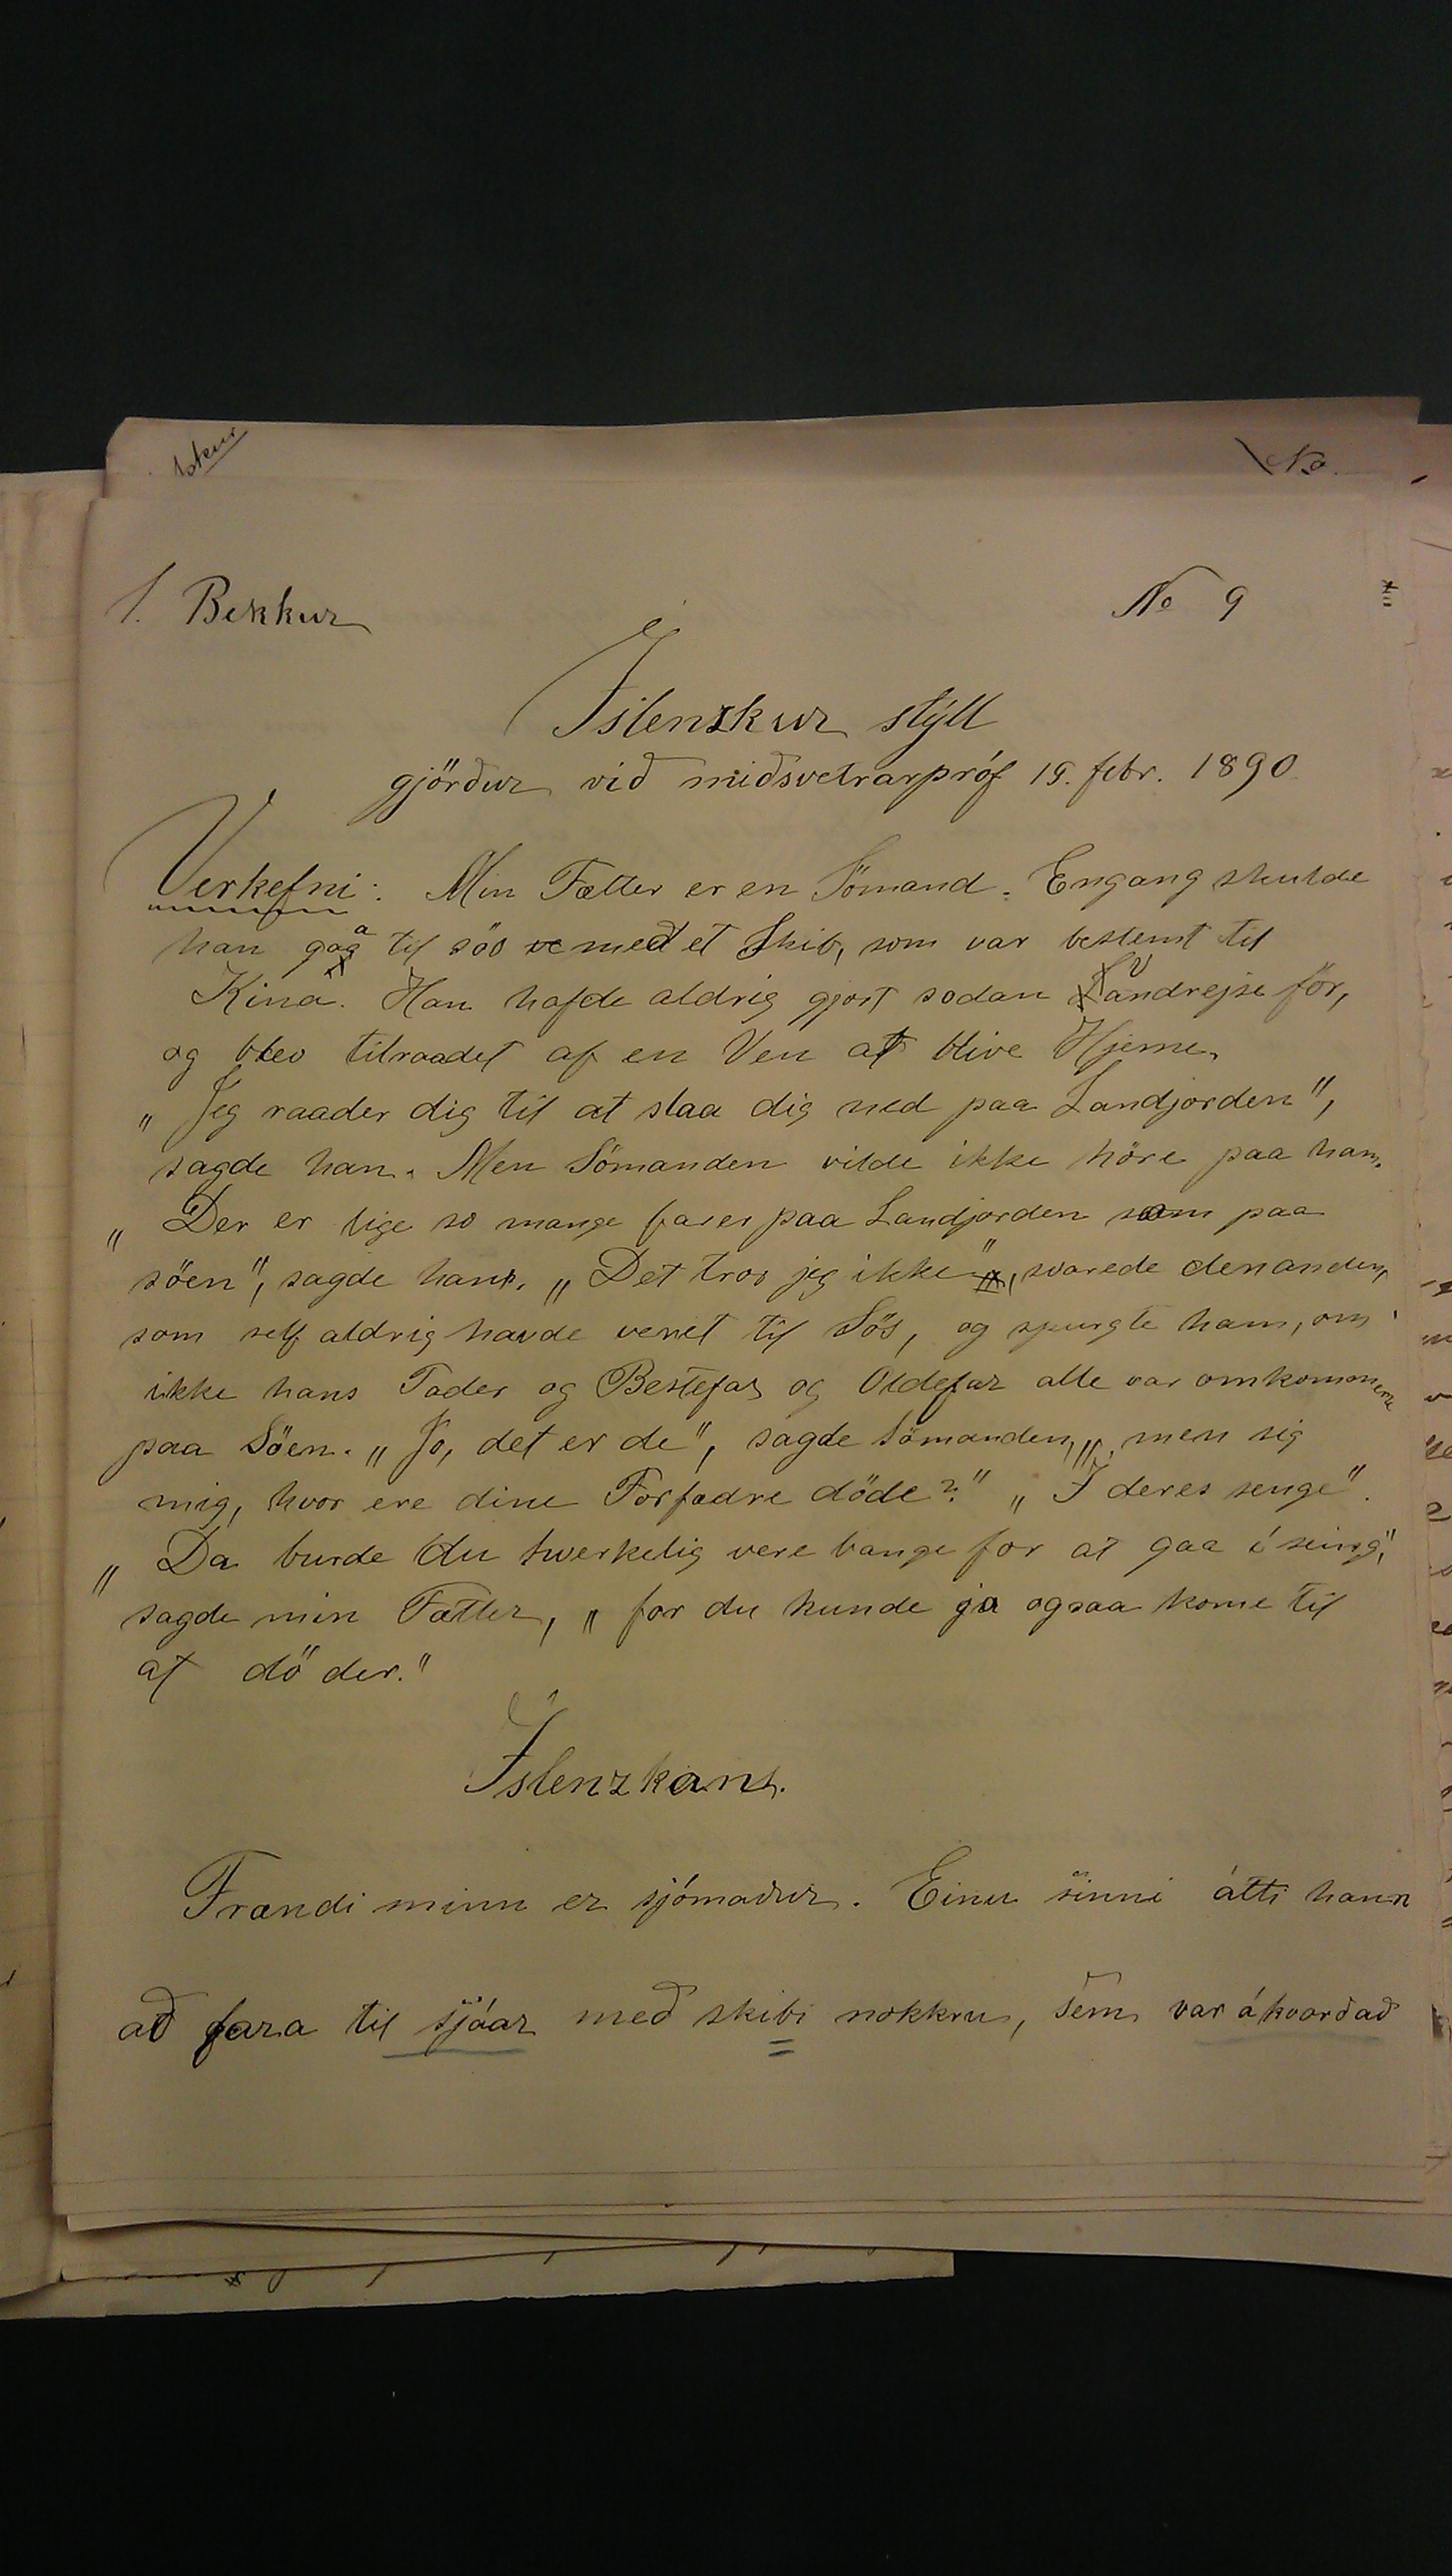 No
1. Bekkur
No 9
Íslenzkur stýll
gjörður við miðsvetrarpróf 19. febr. 1890
Verkefni: Min Fætter er en Sömand. Engang skulde
han gaa til sös med et Skib, som var bestemt til
Kina. Han hafde aldrig gjort sodan Vandrejse för,
og blev tilraadet af en Ven at blive Hjeme.
„Jeg raader dig til at slaa dig ned paa Landjorden",
sagde han. Men Sömanden vilde ikke höre paa ham.
„Der er lige so mange farer paa Landjorden som paa
söen", sagde han. „Det tror jeg ikke", svarede den anden,
som self aldrig havde veret til Sös, og spurgte ham, om
ikke hans Fader og Bestefar og Oldefar alle var omkommene
paa Söen. „Jo, det er de", sagde Sömanden, „men sig
mig, hvor ere dine Forfædre döde?" „I deres senge".
„Da burde du hverkelig vere bange for at gaa í seing",
sagde min Fætter, „for du kunde ja ogsaa kome til
at dö der."
Íslenzkan.
Frændi minn er sjómaður. Einu sinni átti hann
að fara til sjóar með skibi nokkru, sem var ákvarðað